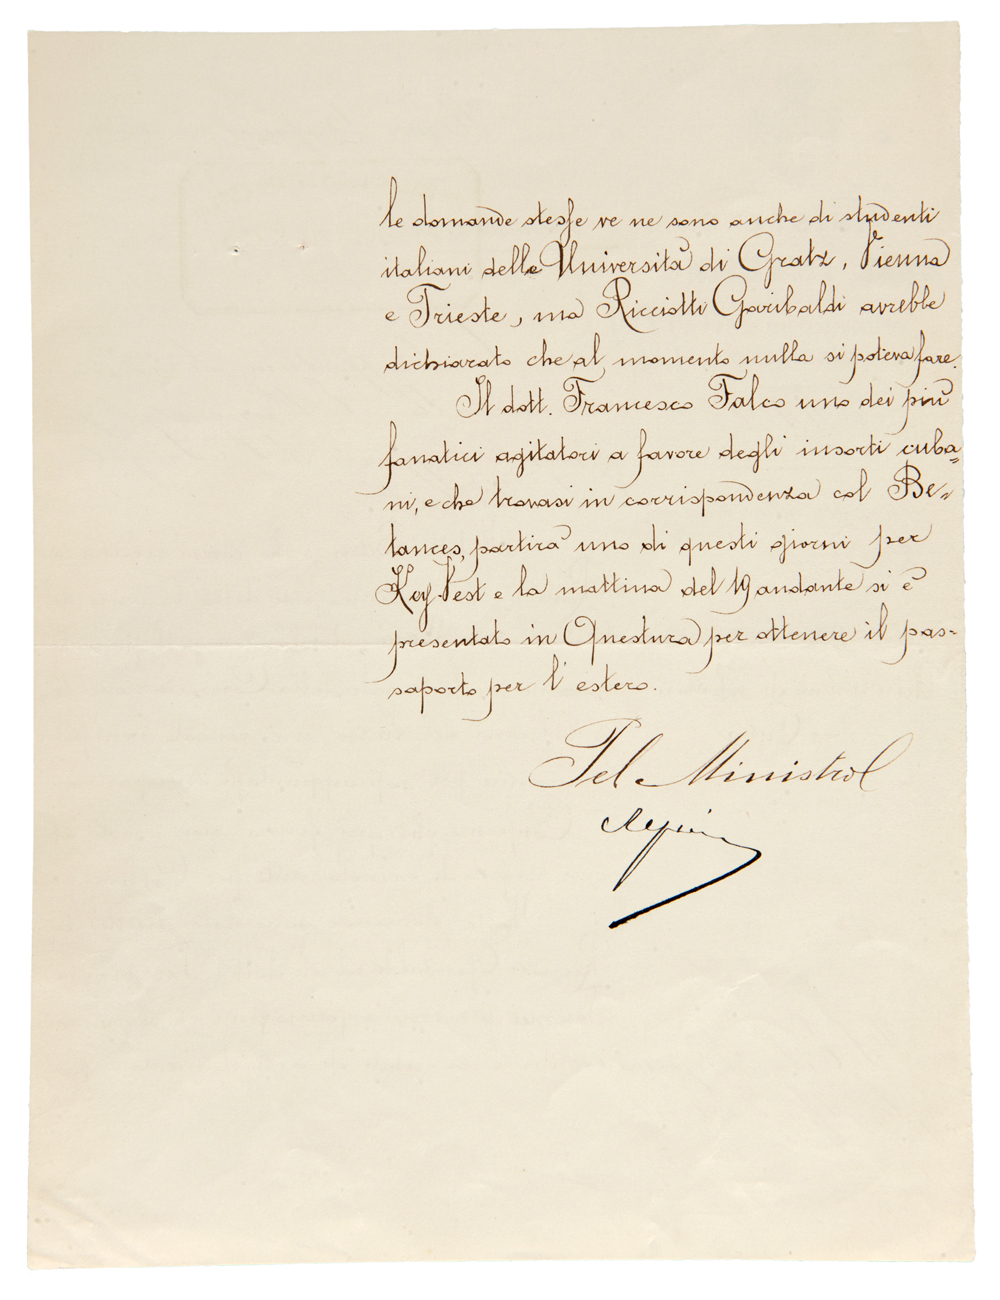 le domande stesse ve ne sono anche di studenti
italiani delle Università di Gratz, Vienna
e Trieste, ma Ricciotti Garibaldi avrebbe
dichiarato che al momento nulla si poteva fare.
Il dott. Francesco Falco uno dei più
fanatici agitatori a favore degli insorti cuba=
ni, e che trovasi in corrispondenza col Be=
tances, partirà uno di questi giorni per
Key Vest e la mattina del 19 andante si è
presentato in Questura per ottenere il pas=
saporto per l'estero.
Pel Ministro